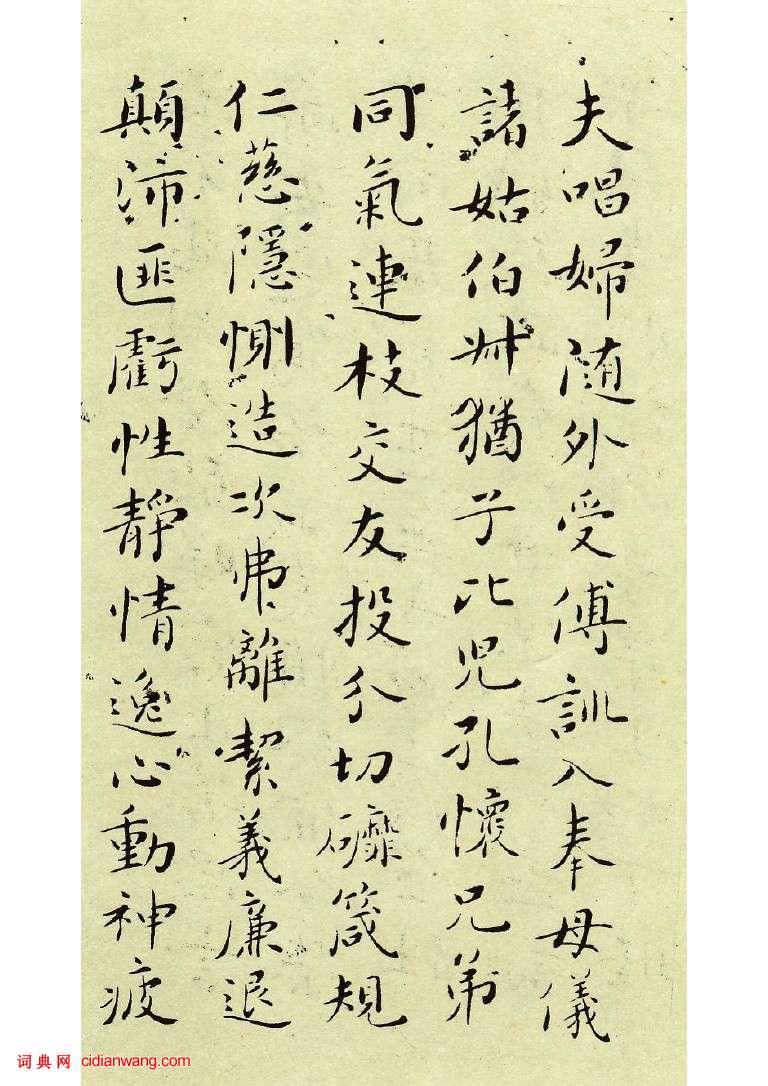 夫唱婦随外受傅訓入奉母儀
諸姑伯叔猶子比兒孔懷兄弟
同氣連枝交友投分切磨箴規
仁慈隱惻造次弗離絜義廉退
顛沛匪虧性靜情逸心動神疲
词典网 cidianwang.com